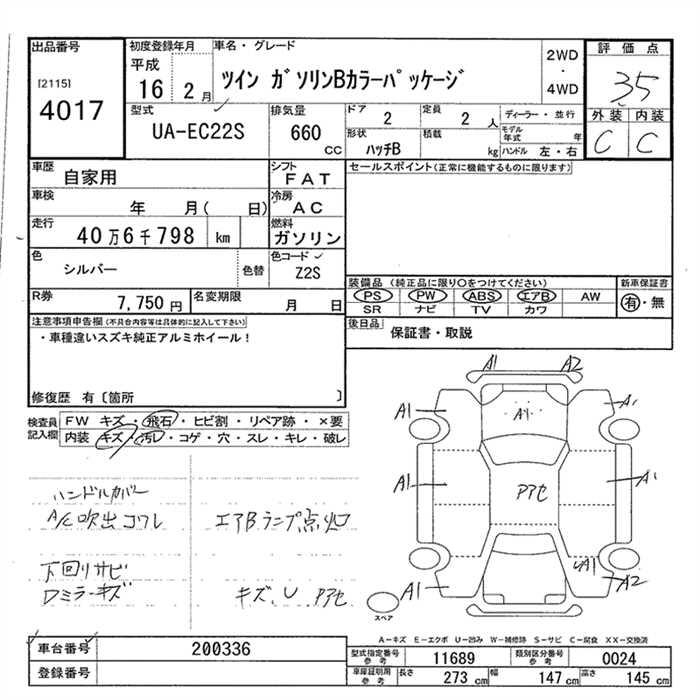 出品番号
[2115]
4017
初度登録年月
平成
16 2 月
車名・グレード
ツイン ガソリンBカラーパッケージ
2WD
・
4WD
評価点
3.5
外装 内装
C C
型式
UA-EC22S
排気量
660
cc
ドア
2
定員
2 人
ディーラー・並行
形状
ハッチB
積載
kg
モデル年式 年
ハンドル 左・右
車歴
自家用
シフト
FAT
車検
年 月( 日)
冷房
AC
走行
40 万 6 千 798 km
燃料
ガソリン
色
シルバー
色替
色コード
Z2S
R券
7,750 円
名変期限
月 日
セールスポイント(正常に機能するものに限ります)
装備品 (純正品に限り○をつけてください)
PS PW ABS エアB AW
SR ナビ TV カワ
新車保証書
有・無
後日品
保証書・取説
注意事項申告欄(不具合内容等は具体的に記入して下さい)
・車種違いスズキ純正アルミホイール!
修復歴 有〔箇所 〕
検査員記入欄
FW キズ・飛石・ヒビ割・リペア跡・×要
内装 キズ・汚レ・コゲ・穴・スレ・キレ・破レ
ハンドルカバー
A/C吹出コワレ
エアBランプ点灯
下回りサビ
Dミラーキズ
キズ、U アセ
A1 A2
A1 A1 A1
A1 アセ A1
A1 A2
スペア
A-キズ E-エクボ U-凹み W-補修跡 S-サビ C-腐食 XX-交換済
車台番号
200336
登録番号
型式指定番号
参考
11689
類別区分番号
参考
0024
車庫証明用
参考
長さ
273 cm
幅
147 cm
高さ
145 cm